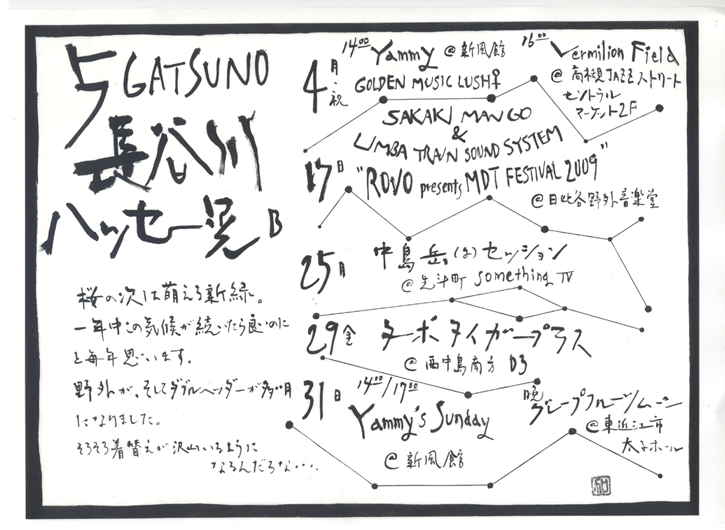 5 GATSUNO
長谷川
ハッセー晃 B
桜の次は萌える新緑。
一年中この気候が続いたら良いのに
と毎年思います。
野外が、そしてダブルヘッダーが多い月
になりました。
そろそろ着替えが沢山いるように
なるんだろな・・・.
4月・祝
14:00 Yammy @新風館
GOLDEN MUSIC LUSH♀
16:00 Vermilion Field
@高槻JAZZストリート
セントラル
マーケット2F
17日
SAKAKI MANGO
&
LIMBA TRAIN SOUND SYSTEM
"ROVO presents MDT FESTIVAL 2009"
@日比谷野外音楽堂
25月 中島岳(B)セッション
@先斗町 something IV
29金 ターボタイガープラス
@西中島南方 D3
31日 14:00/17:00
Yammy's Sunday
@新風館
晩 グレープフルーツムーン
@東近江市
太子ホール